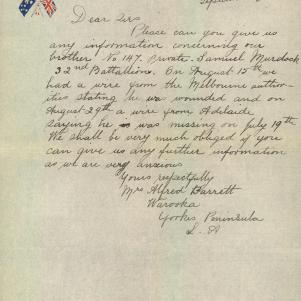 Dear Sirs
Please can you give us
any information concerning our
brother No 147. Private. Samuel Murdock
32nd Battalion. On August 15th we
had a wire from the Melbourne author-
ities stating he was wounded and on
August 29th a wire from Adelaide
saying he was missing on July 19th
We shall be very much obliged if you
can give us any further information
as we are very anxious
Yours respectfully
Mrs Alfred Barrett
Warooka
Yorkes Peninsula
S. A